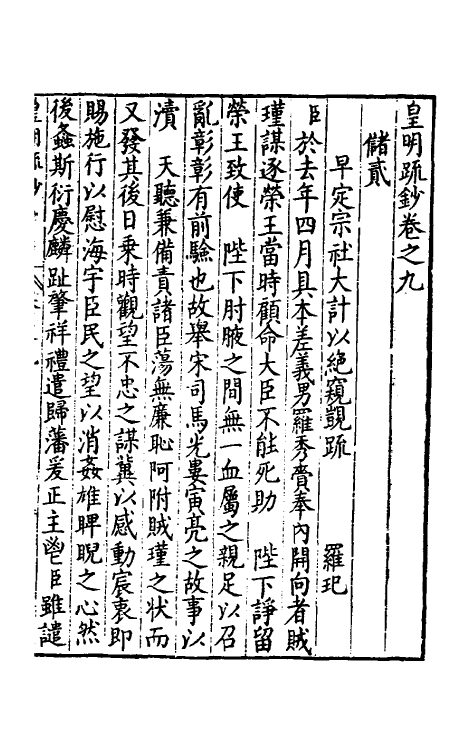 皇明疏鈔卷之九
儲貳
早定宗社大計以絶窺覬疏 羅玘
臣於去年四月具本差義男羅秀賫奉內開向者賊
瑾謀逐榮王當時顧命大臣不能死助 陛下諍留
榮王致使 陛下肘腋之間無一血屬之親足以召
亂彰彰有前驗也故舉宋司馬光婁寅亮之故事以
瀆 天聽兼備責諸臣蕩無廉恥阿附賊瑾之狀而
又發其後日乗時觀望不忠之謀冀以感動宸衷即
賜施行以慰海宇臣民之望以消姦雄睥睨之心然
後螽斯衍慶麟趾肇祥禮遣歸藩爰正主鬯臣雖譴
皇明疏鈔